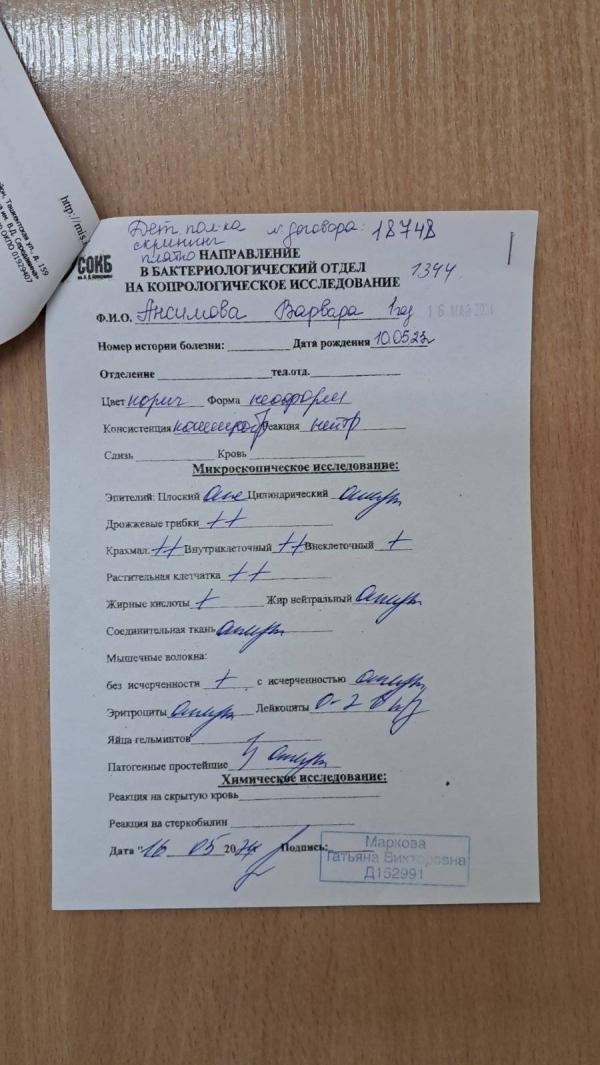 http://mis
район, Ташкентская ул., д. 159
им. В.Д. Середавина»
ОКПО 01929407
Дет пол-ка № договора: 18748
скрининг
платно
СОКБ
им. В. Д. Середавина
НАПРАВЛЕНИЕ
В БАКТЕРИОЛОГИЧЕСКИЙ ОТДЕЛ 1344
НА КОПРОЛОГИЧЕСКОЕ ИССЛЕДОВАНИЕ
Ф.И.О. Ансимова Варвара 1 год 16 МАЙ 2024
Номер истории болезни: Дата рождения 10.05.23г
Отделение тел.отд.
Цвет корич Форма неоформ
Консистенция кашицеобр Реакция нейтр
Слизь Кровь
Микроскопическое исследование:
Эпителий: Плоский Цилиндрический отсут
Дрожжевые грибки ++
Крахмал: ++ Внутриклеточный ++ Внеклеточный +
Растительная клетчатка ++
Жирные кислоты + Жир нейтральный отсут
Соединительная ткань отсут
Мышечные волокна:
без исчерченности + с исчерченностью отсут
Эритроциты отсут Лейкоциты 0-2 в п/з
Яйца гельминтов
Патогенные простейшие } отсут
Химическое исследование:
Реакция на скрытую кровь
Реакция на стеркобилин
Дата "16 05 2024г Подпись:
Маркова
Татьяна Викторовна
Д152991